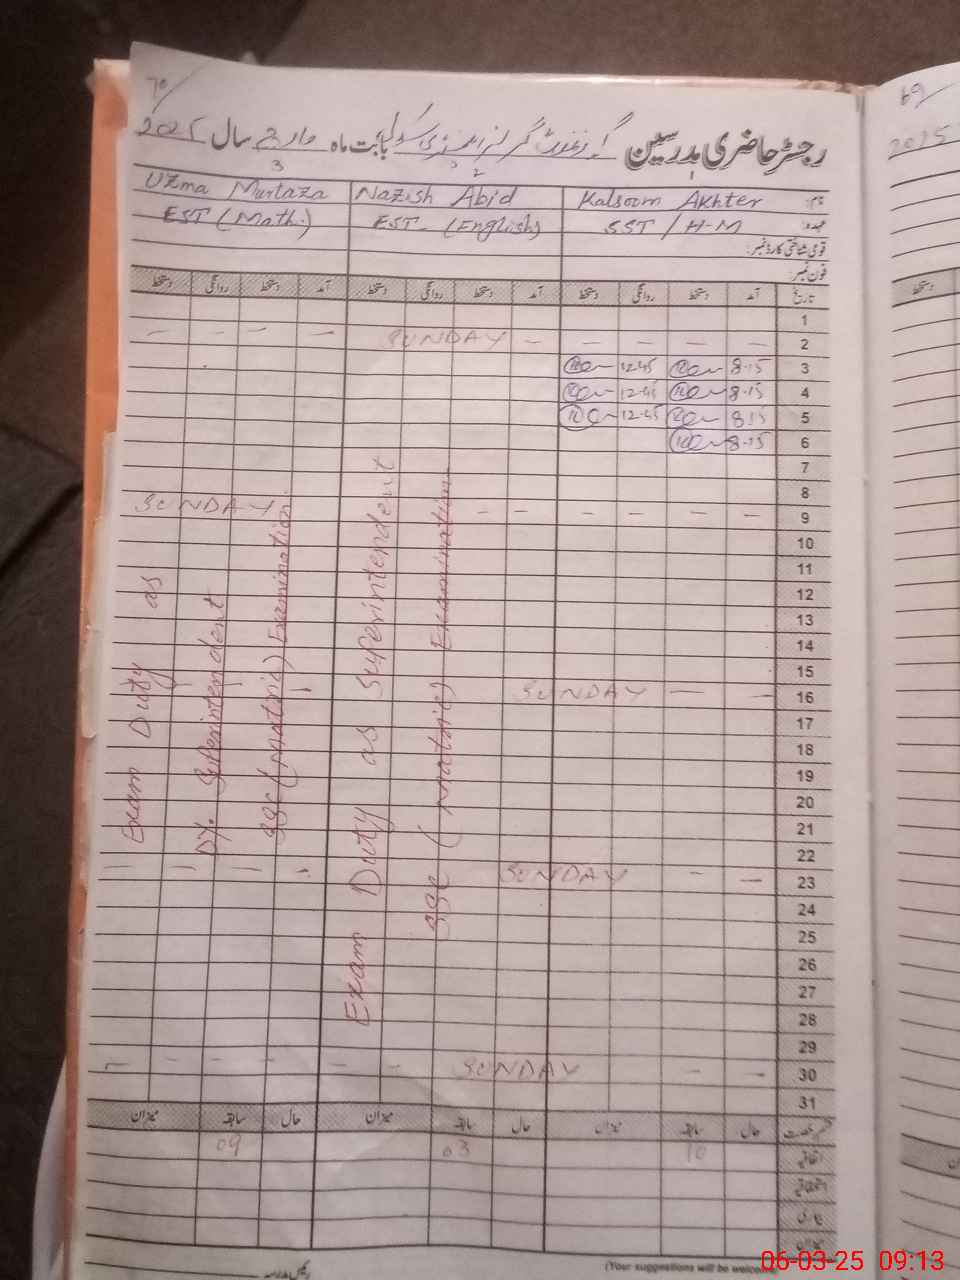 70
رجسٹر حاضری مدرسین گورنمنٹ گرلز سکول بابت ماہ مارچ سال 2025
3
نام: Kalsoom Akhter Nazish Abid Uzma Murtaza
عہدہ: SST / H-M EST (English) EST (Math.)
قومی شناختی کارڈ نمبر:
فون نمبر:
تاریخ آمد دستخط روانگی دستخط آمد دستخط روانگی دستخط آمد دستخط روانگی دستخط
1
2 SUNDAY
3 8-15 12-45
4 8-15 12-45
5 8-15 12-45
6 8-15
7
8
9 SUNDAY
10
11
12
13
14
15
16 SUNDAY
17
18
19
20
21
22
23 SUNDAY
24
25
26
27
28
29
30 SUNDAY
31
Exam Duty as
Dy. Superintendent
SSC (Matric) Examination.
Exam Duty as Superintendent
SSC (Matric) Examination
حال سابقہ میزان حال سابقہ میزان حال سابقہ میزان
اتفاقیہ 10 03 09
استحقاقیہ
بیماری
میزان
رئیس مدرسہ
(Your suggestions will be welcome)
69
2025
دستخط
06-03-25 09:13